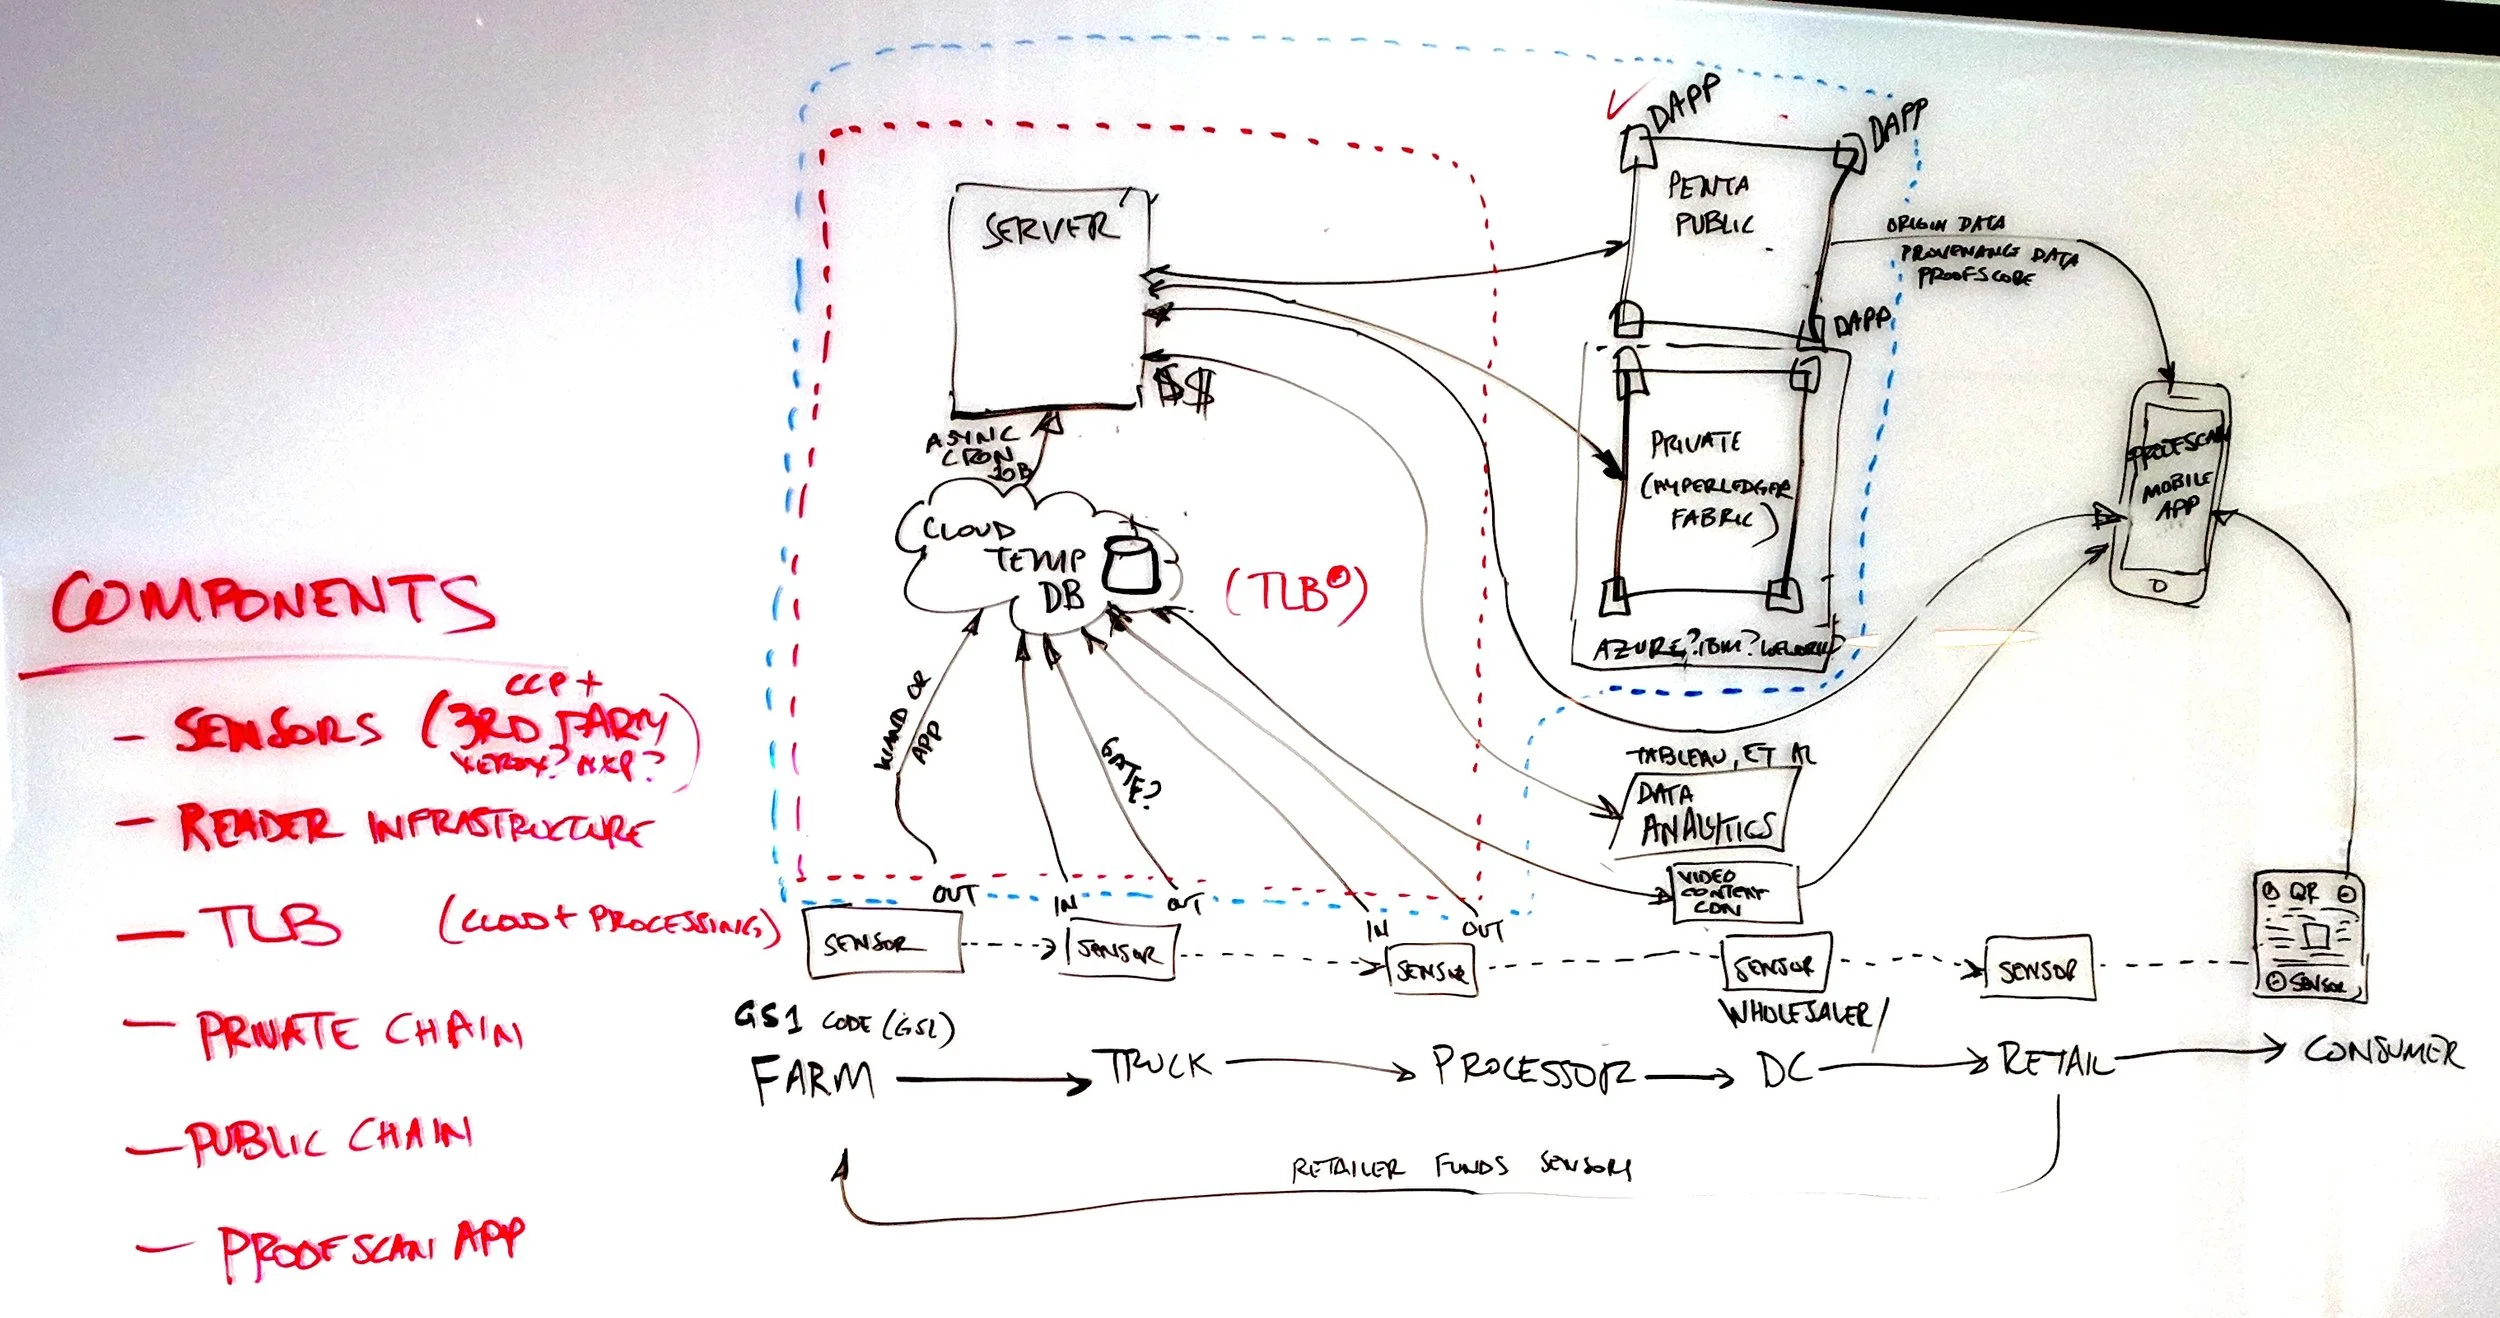 COMPONENTS
- SENSORS (3RD PARTY
CCP +
XEROX? NXP?)
- READER INFRASTRUCTURE
- TLB (CLOUD + PROCESSING)
- PRIVATE CHAIN
- PUBLIC CHAIN
- PROOFSCAN APP
SERVER
$$
ASYNC
CRON
JOB
CLOUD
TEMP
DB
(TLB)
WAND OR
APP
GATE?
DAPP
DAPP
PENTA
PUBLIC
DAPP
PRIVATE
(HYPERLEDGER
FABRIC)
AZURE? IBM?
ORIGIN DATA
PROVENANCE DATA
PROOFSCORE
PROOFSCAN
MOBILE
APP
TABLEAU, ET AL
DATA
ANALYTICS
VIDEO
CONTENT
CDN
OUT
IN
OUT
IN
OUT
SENSOR
SENSOR
SENSOR
SENSOR
SENSOR
QR
SENSOR
GS1 CODE (GSL)
WHOLESALER/
FARM
TRUCK
PROCESSOR
DC
RETAIL
CONSUMER
RETAILER FUNDS SENSORS